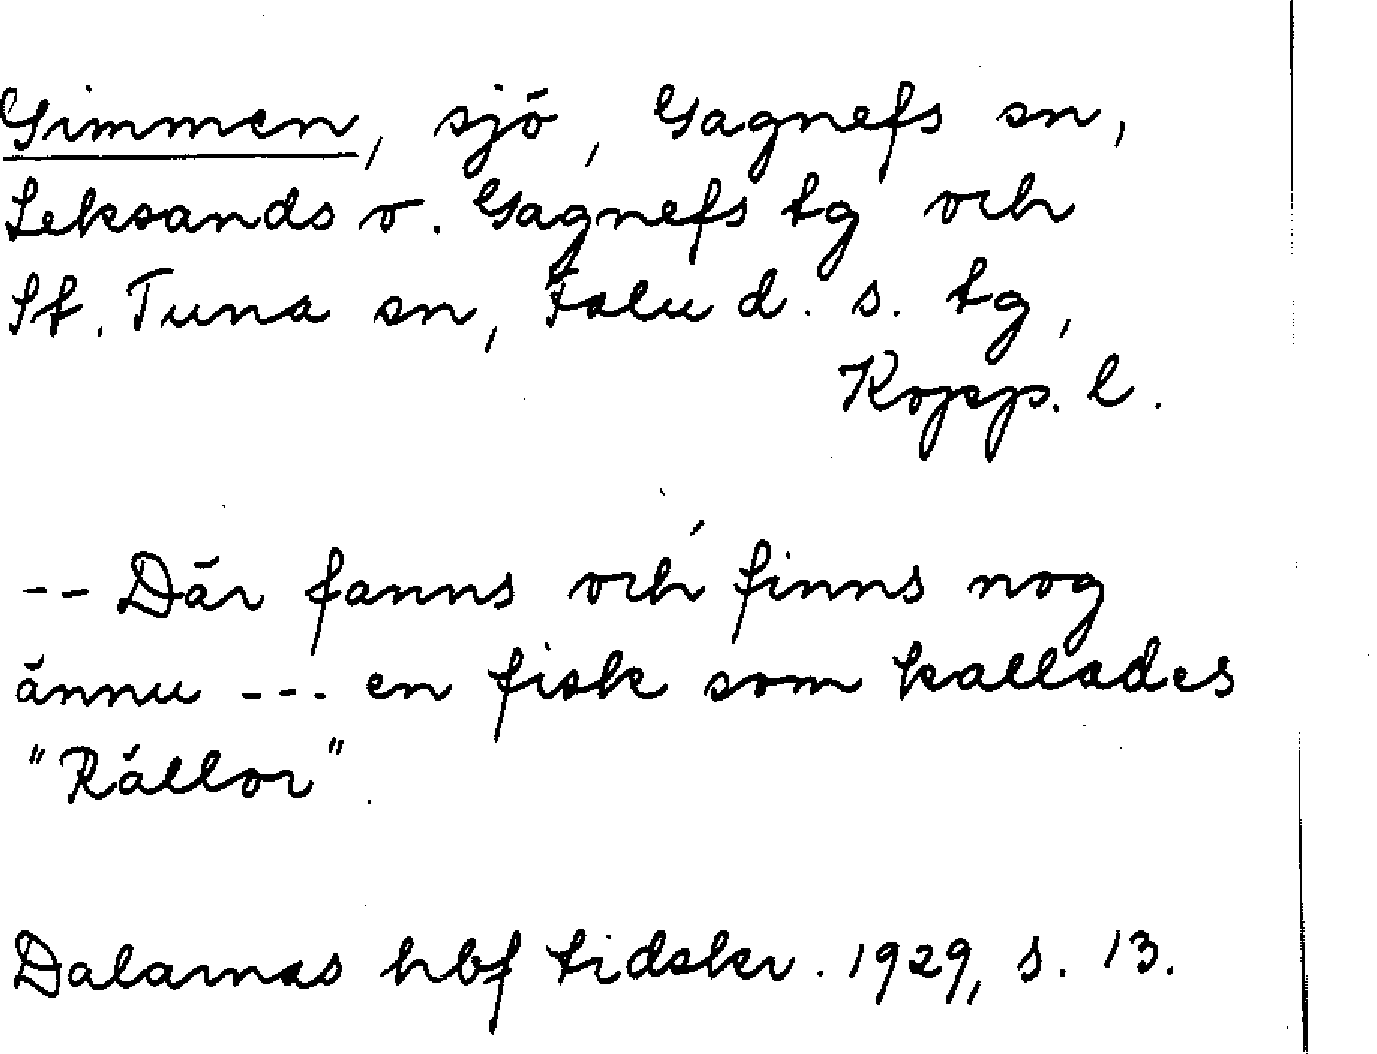 Gimmen, sjö, Gagnefs sn,
Leksands o. Gagnefs tg och
St. Tuna sn, Falu d. s. tg,
Kopp. l.
-- Där fanns och finns nog
ännu --- en fisk som kallades
"Rällor".
Dalarnas hbf tidskr. 1929, s. 13.